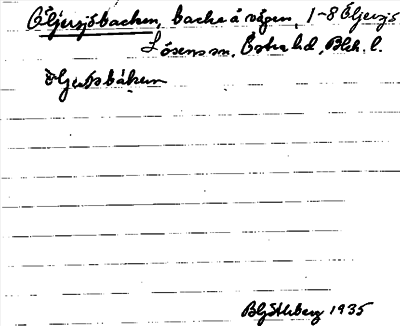 Öljersjöbacken, backe å vägen, 1-8 Öljersjö
Lösens sn, Östra hd, Blek. l.
öljersbäken
1935